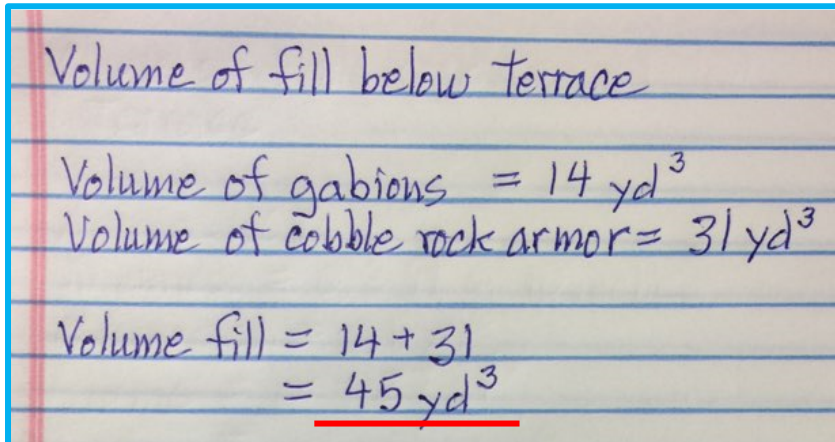 Volume of fill below terrace
Volume of gabions = 14 yd³
Volume of cobble rock armor = 31 yd³
Volume fill = 14 + 31
= 45 yd³